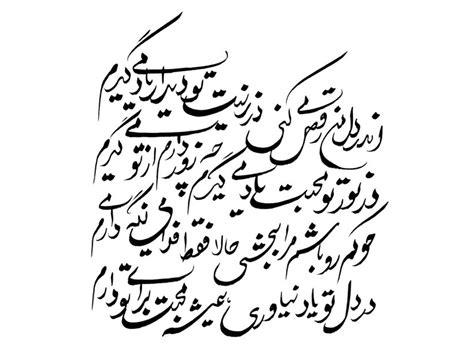 اندر دل من رقص می کنی در نیت تو دیدار یاد می گیرم
در نور تو محبت یاد می گیرم چه زود دارم از تو می گیرم
کم رو باشم مرا ببخشی حالا فقط می نگه دارم
در دل تو یاد نیاوری، محبت برای تو دارم